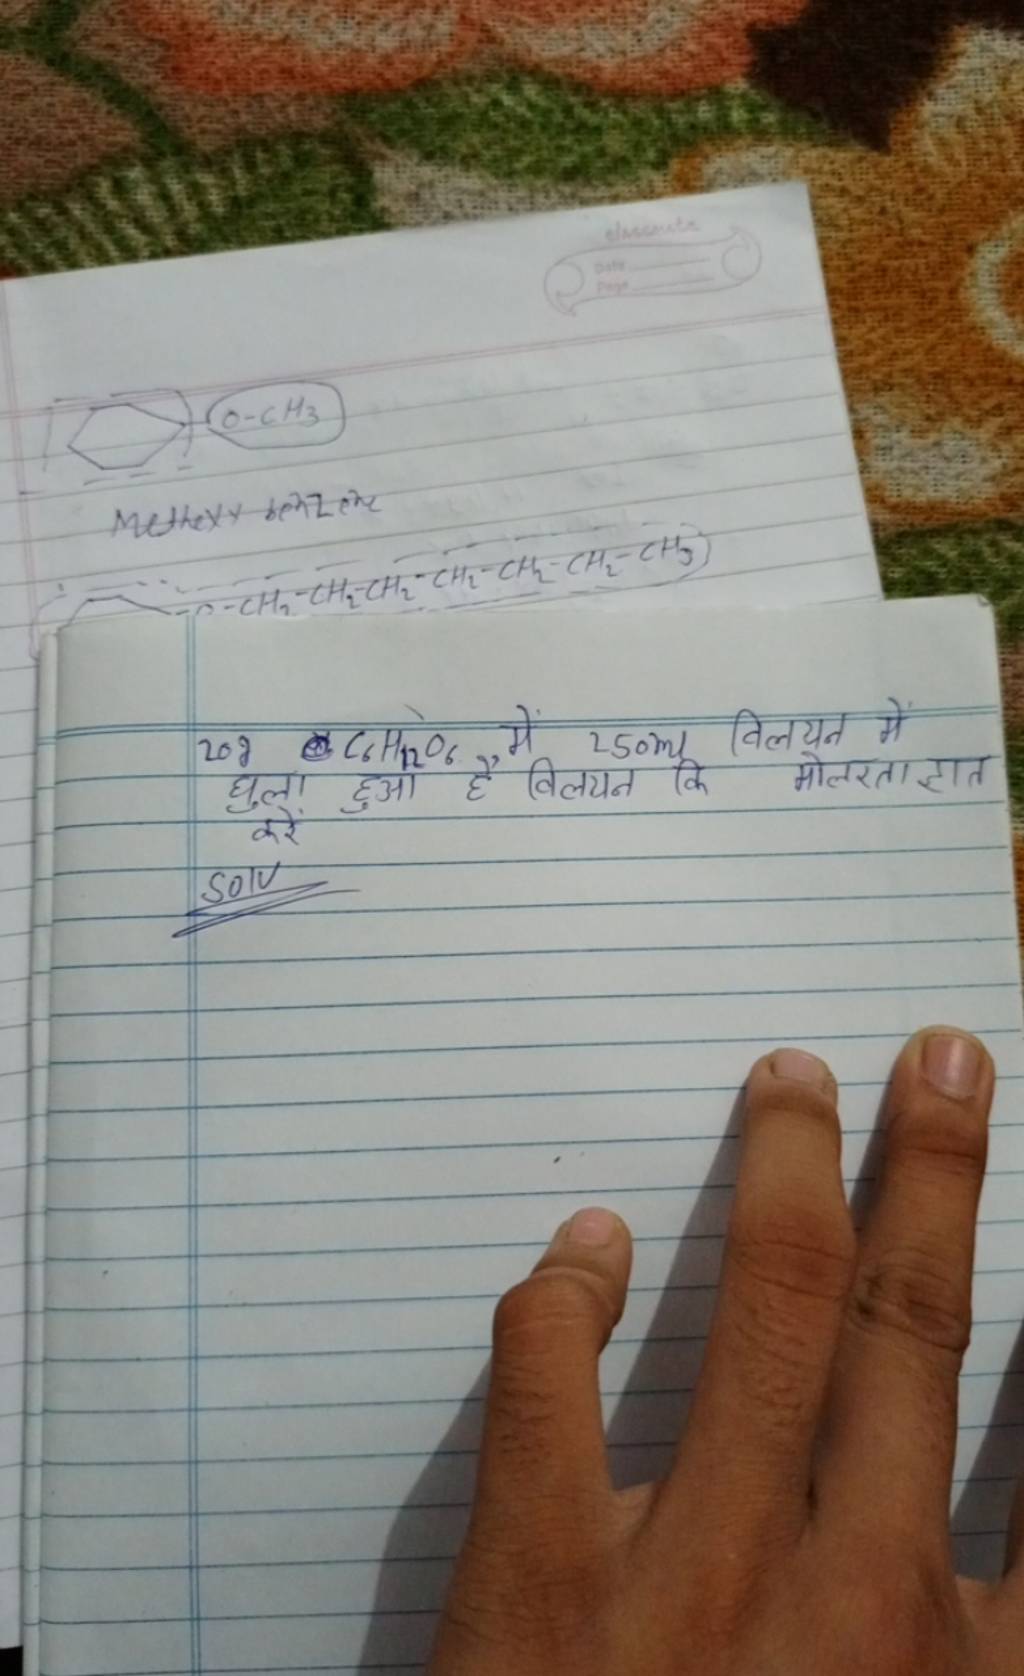 classmate
Date
Page
O-CH3
Methoxy benzene
O-CH2-CH2-CH2-CH2-CH2-CH2-CH3
20g C6H12O6 में 250ml विलयन में
घुला हुआ है विलयन कि मोलरता ज्ञात
करें
Solv